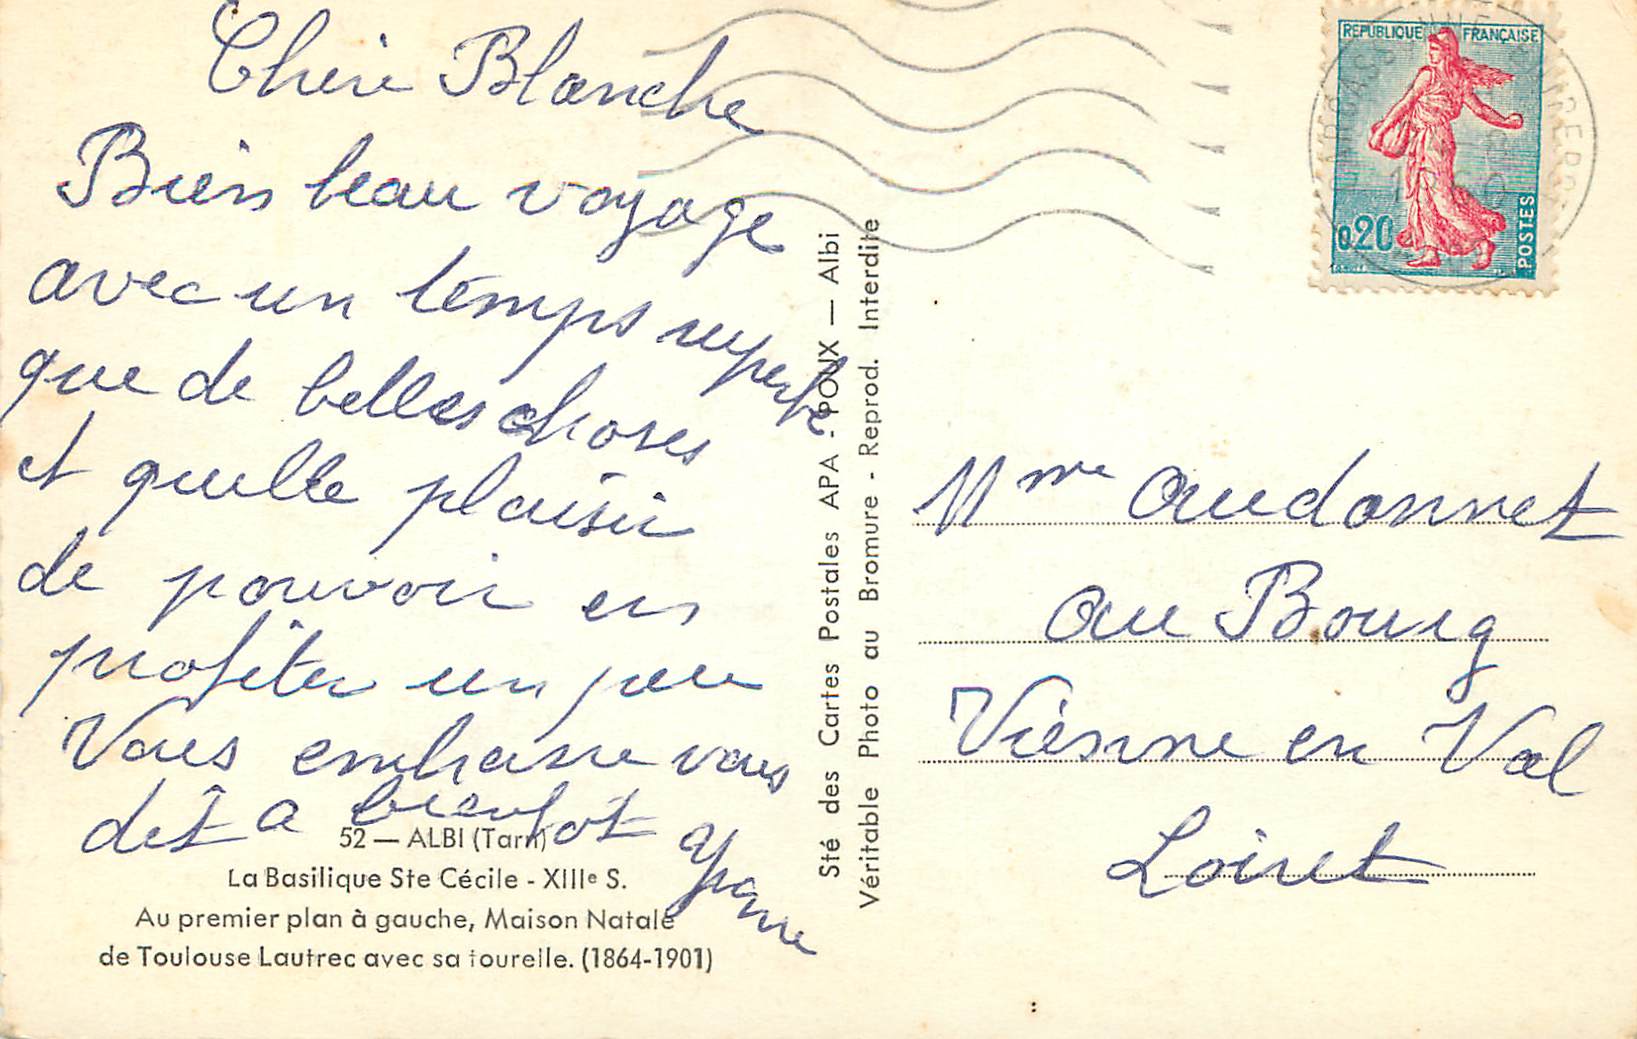 Chère Blanche
Bien beau voyage
avec un temps superbe
que de belles choses
et quelle plaisir
de pouvoir en
profiter un peu
Vous embrasse vous
dit a bientot Yvonne
52 — ALBI (Tarn)
La Basilique Ste Cécile - XIIIe S.
Au premier plan à gauche, Maison Natale
de Toulouse Lautrec avec sa tourelle. (1864-1901)
Sté des Cartes Postales APA - POUX — Albi
Véritable Photo au Bromure - Reprod. Interdite
REPUBLIQUE FRANÇAISE
0.20
POSTES
Mme Audonnet
au Bourg
Vienne en Val
Loiret